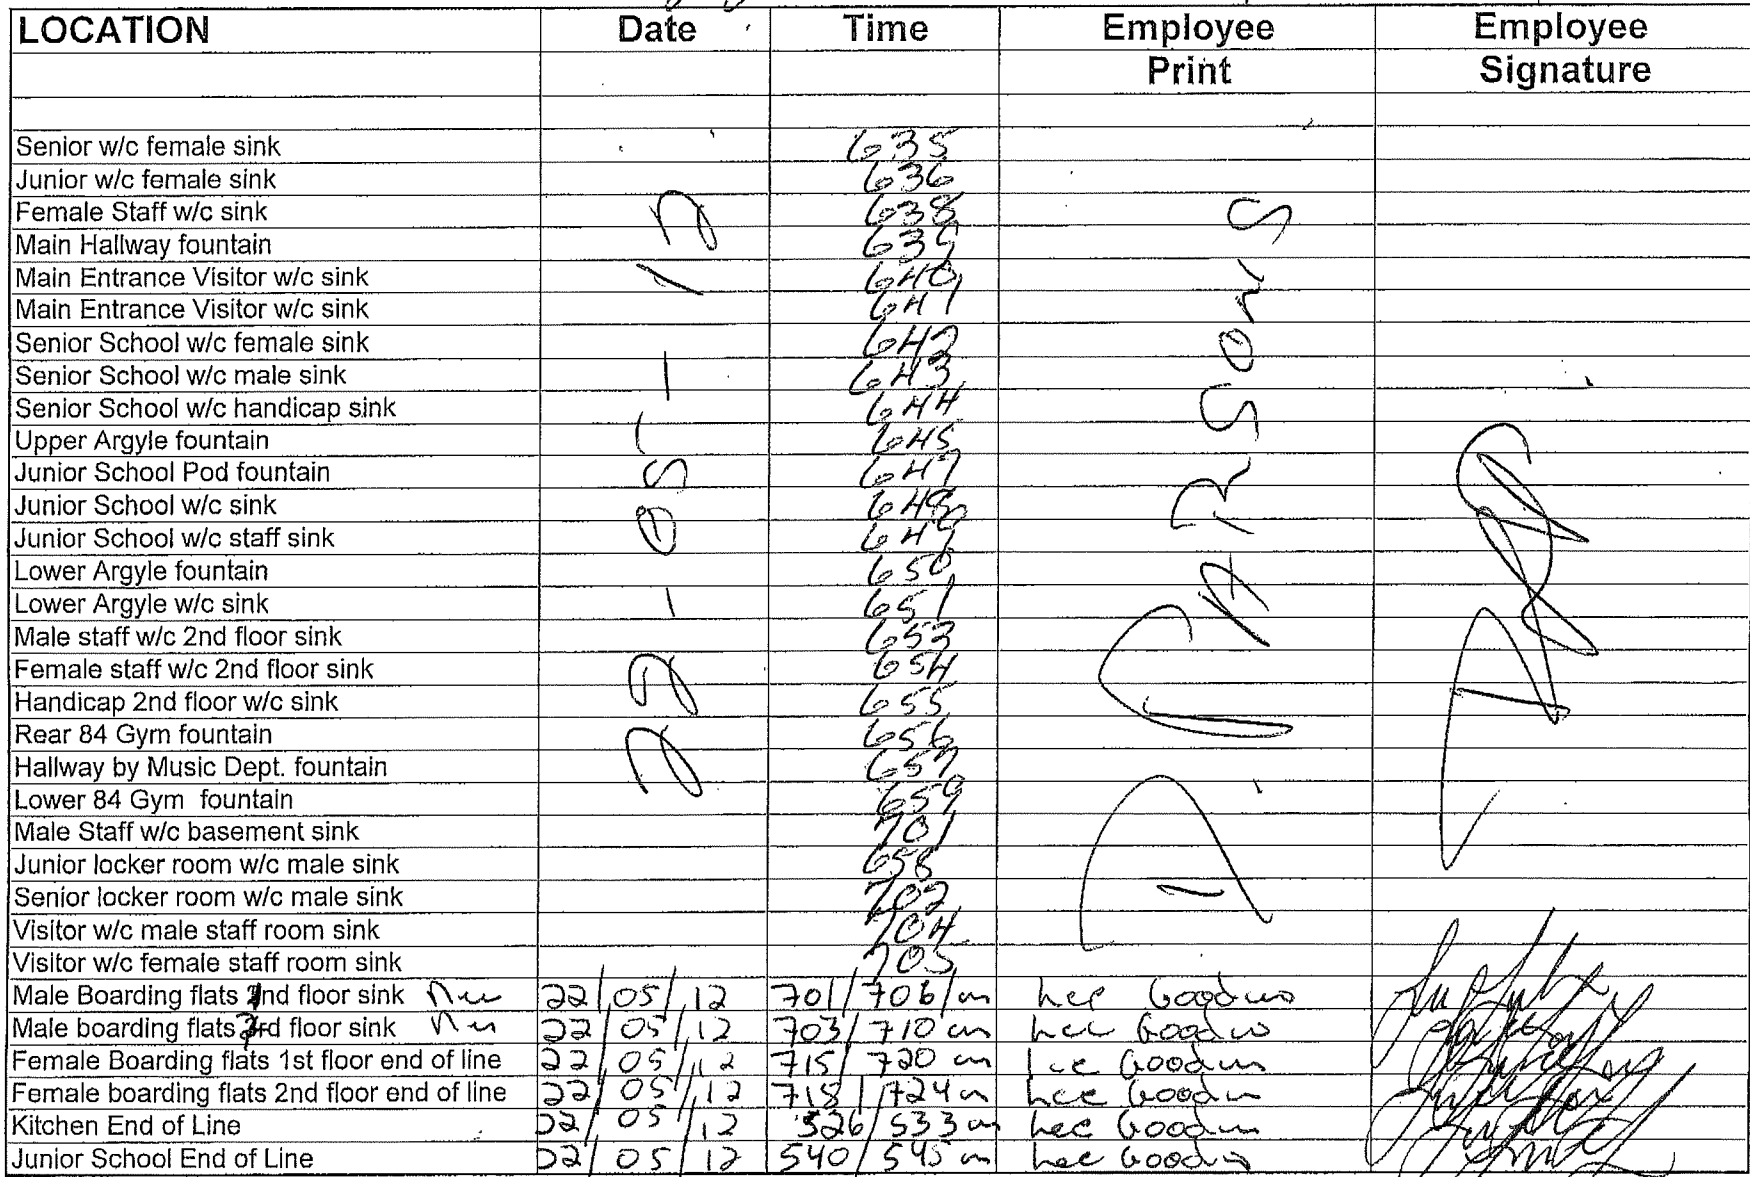 LOCATION Date Time Employee Employee
Print Signature
Senior w/c female sink 635
Junior w/c female sink 636
Female Staff w/c sink 638
Main Hallway fountain 639
Main Entrance Visitor w/c sink 640
Main Entrance Visitor w/c sink 641
Senior School w/c female sink 642
Senior School w/c male sink 643
Senior School w/c handicap sink 644
Upper Argyle fountain 645
Junior School Pod fountain 647
Junior School w/c sink 648
Junior School w/c staff sink 649
Lower Argyle fountain 650
Lower Argyle w/c sink 651
Male staff w/c 2nd floor sink 653
Female staff w/c 2nd floor sink 654
Handicap 2nd floor w/c sink 655
Rear 84 Gym fountain 656
Hallway by Music Dept. fountain 657
Lower 84 Gym fountain 659
Male Staff w/c basement sink 701
Junior locker room w/c male sink 658
Senior locker room w/c male sink 702
Visitor w/c male staff room sink 704
Visitor w/c female staff room sink 705
22-05-12
PARSONS
Male Boarding flats nd floor sink 22/05/12 701/706 Lee Goodwin
Male boarding flats 3rd floor sink 22/05/12 703/710 Lee Goodwin
Female Boarding flats 1st floor end of line 22/05/12 715/720 Lee Goodwin
Female boarding flats 2nd floor end of line 22/05/12 718/724 Lee Goodwin
Kitchen End of Line 22/05/12 526/533 Lee Goodwin
Junior School End of Line 22/05/12 540/545 Lee Goodwin